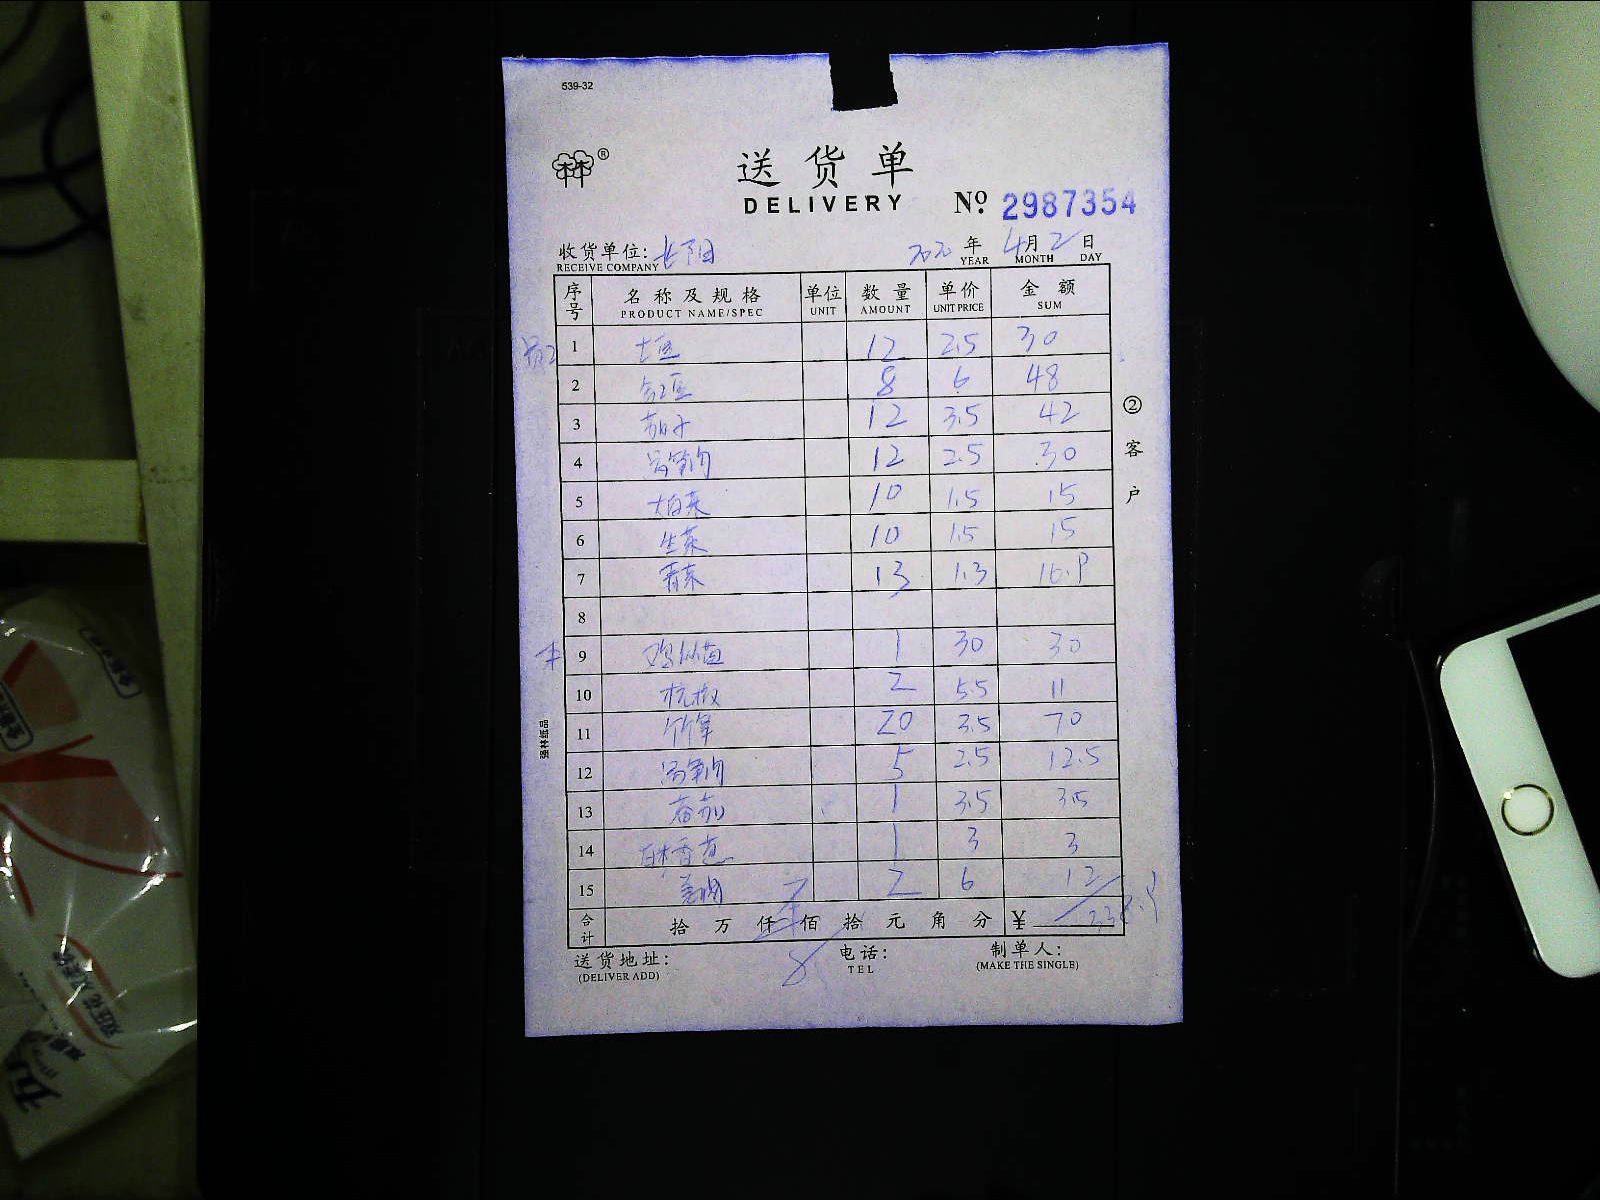 539-32
林林®
送货单
DELIVERY No. 2987354
收货单位: 长阳 2020 年 4 月 2 日
RECEIVE COMPANY YEAR MONTH DAY
序号 名称及规格 单位 数量 单价 金额
PRODUCT NAME/SPEC UNIT AMOUNT UNIT PRICE SUM
1 土豆 12 2.5 30
2 缸豆 8 6 48
3 茄子 12 3.5 42
4 窝笋肉 12 2.5 30
5 大白菜 10 1.5 15
6 生菜 10 1.5 15
7 青菜 13 1.3 16.9
8
9 30 30
10 杭椒 2 5.5 11
11 竹笋 20 3.5 70
12 窝笋肉 5 2.5 12.5
13 番茄 1 3.5 3.5
14 1 3 3
15 2 6 12
合计 拾 万 仟 佰 拾 元 角 分 ¥ 338.9
送货地址: 电话: 制单人:
(DELIVER ADD) TEL (MAKE THE SINGLE)
② 客户
强林纸品